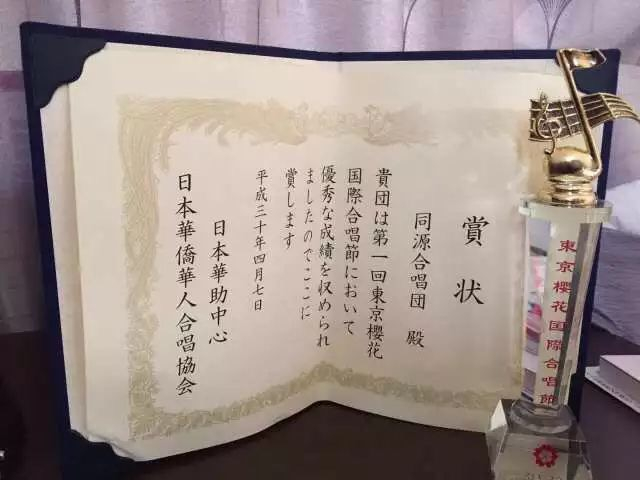 賞状
同源合唱団 殿
貴団は第一回東京櫻花
国際合唱節において
優秀な成績を収められ
ましたのでここに
賞します
平成三十年四月七日
日本華助中心
日本華僑華人合唱協会
東京櫻花国際合唱節